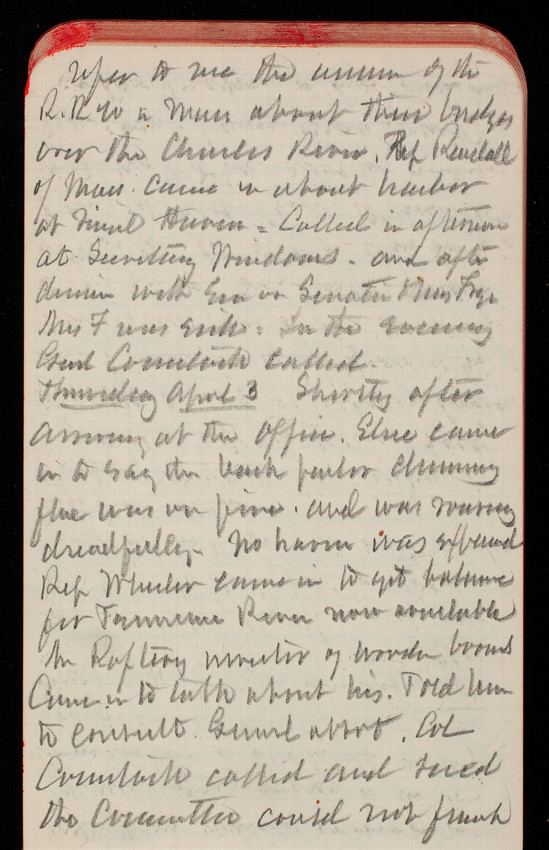 refer to me the union of the
R.R. Co in Mass about their bridges
over the Charles River. Rep Randall
of Mass. came in about harbor
at Haven = Called in afternoon
at Secretary Windoms. and after
dinner with Em on Senator & Mrs Frye
Mrs F was sick = In the evening
Genl Comstock called.
Thursday April 3 Shortly after
arriving at the office. Elsie came
in to say the back parlor chimney
flue was on fire. and was roaring
dreadfully. No harm was
Rep Wheeler came in to get balance
for Tennessee River now available
Mr of wooden booms
Came in to talk about his. Told him
to consult Genl Abbot. Col
Comstock called and said
the Committee could not